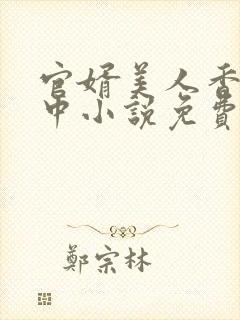 官婿美人香
中小說免費
鄭宗林